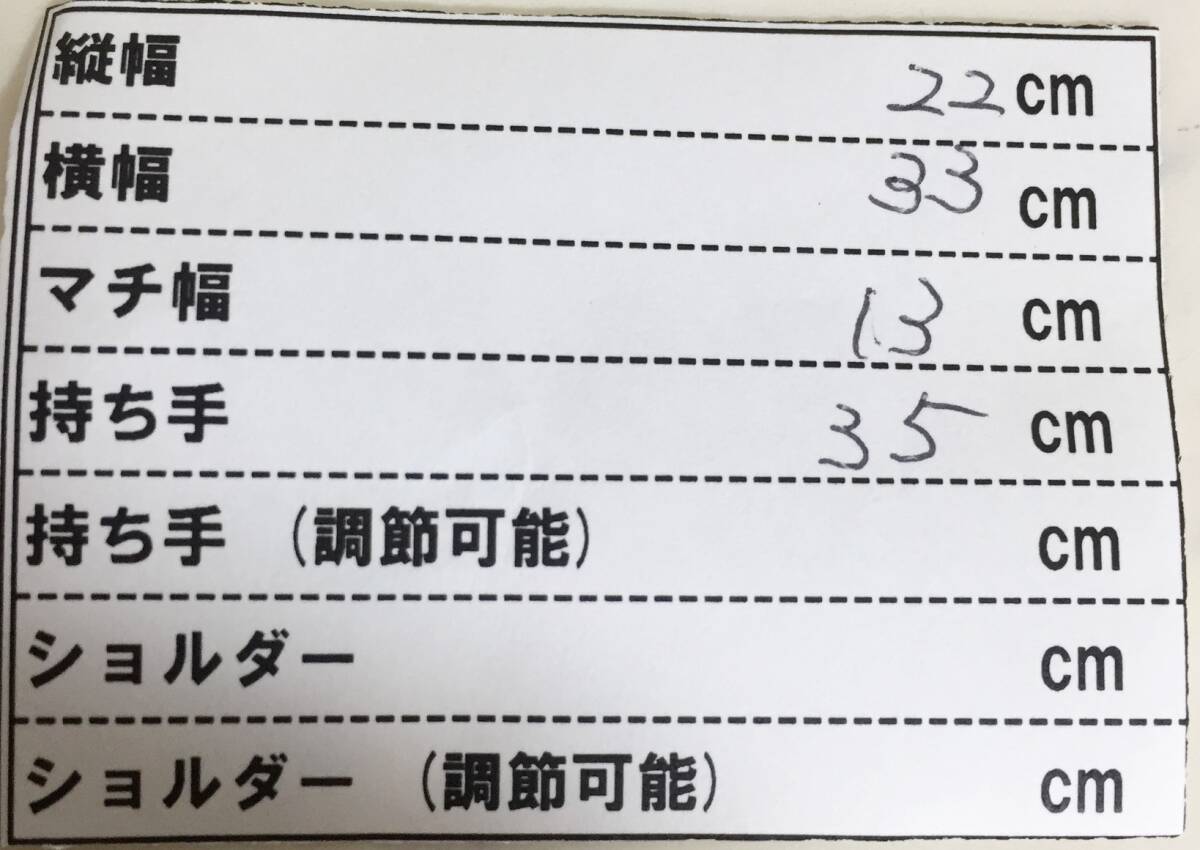 縦幅 22cm
横幅 33 cm
マチ幅 13 cm
持ち手 35 cm
持ち手 (調節可能) cm
ショルダー cm
ショルダー (調節可能) cm